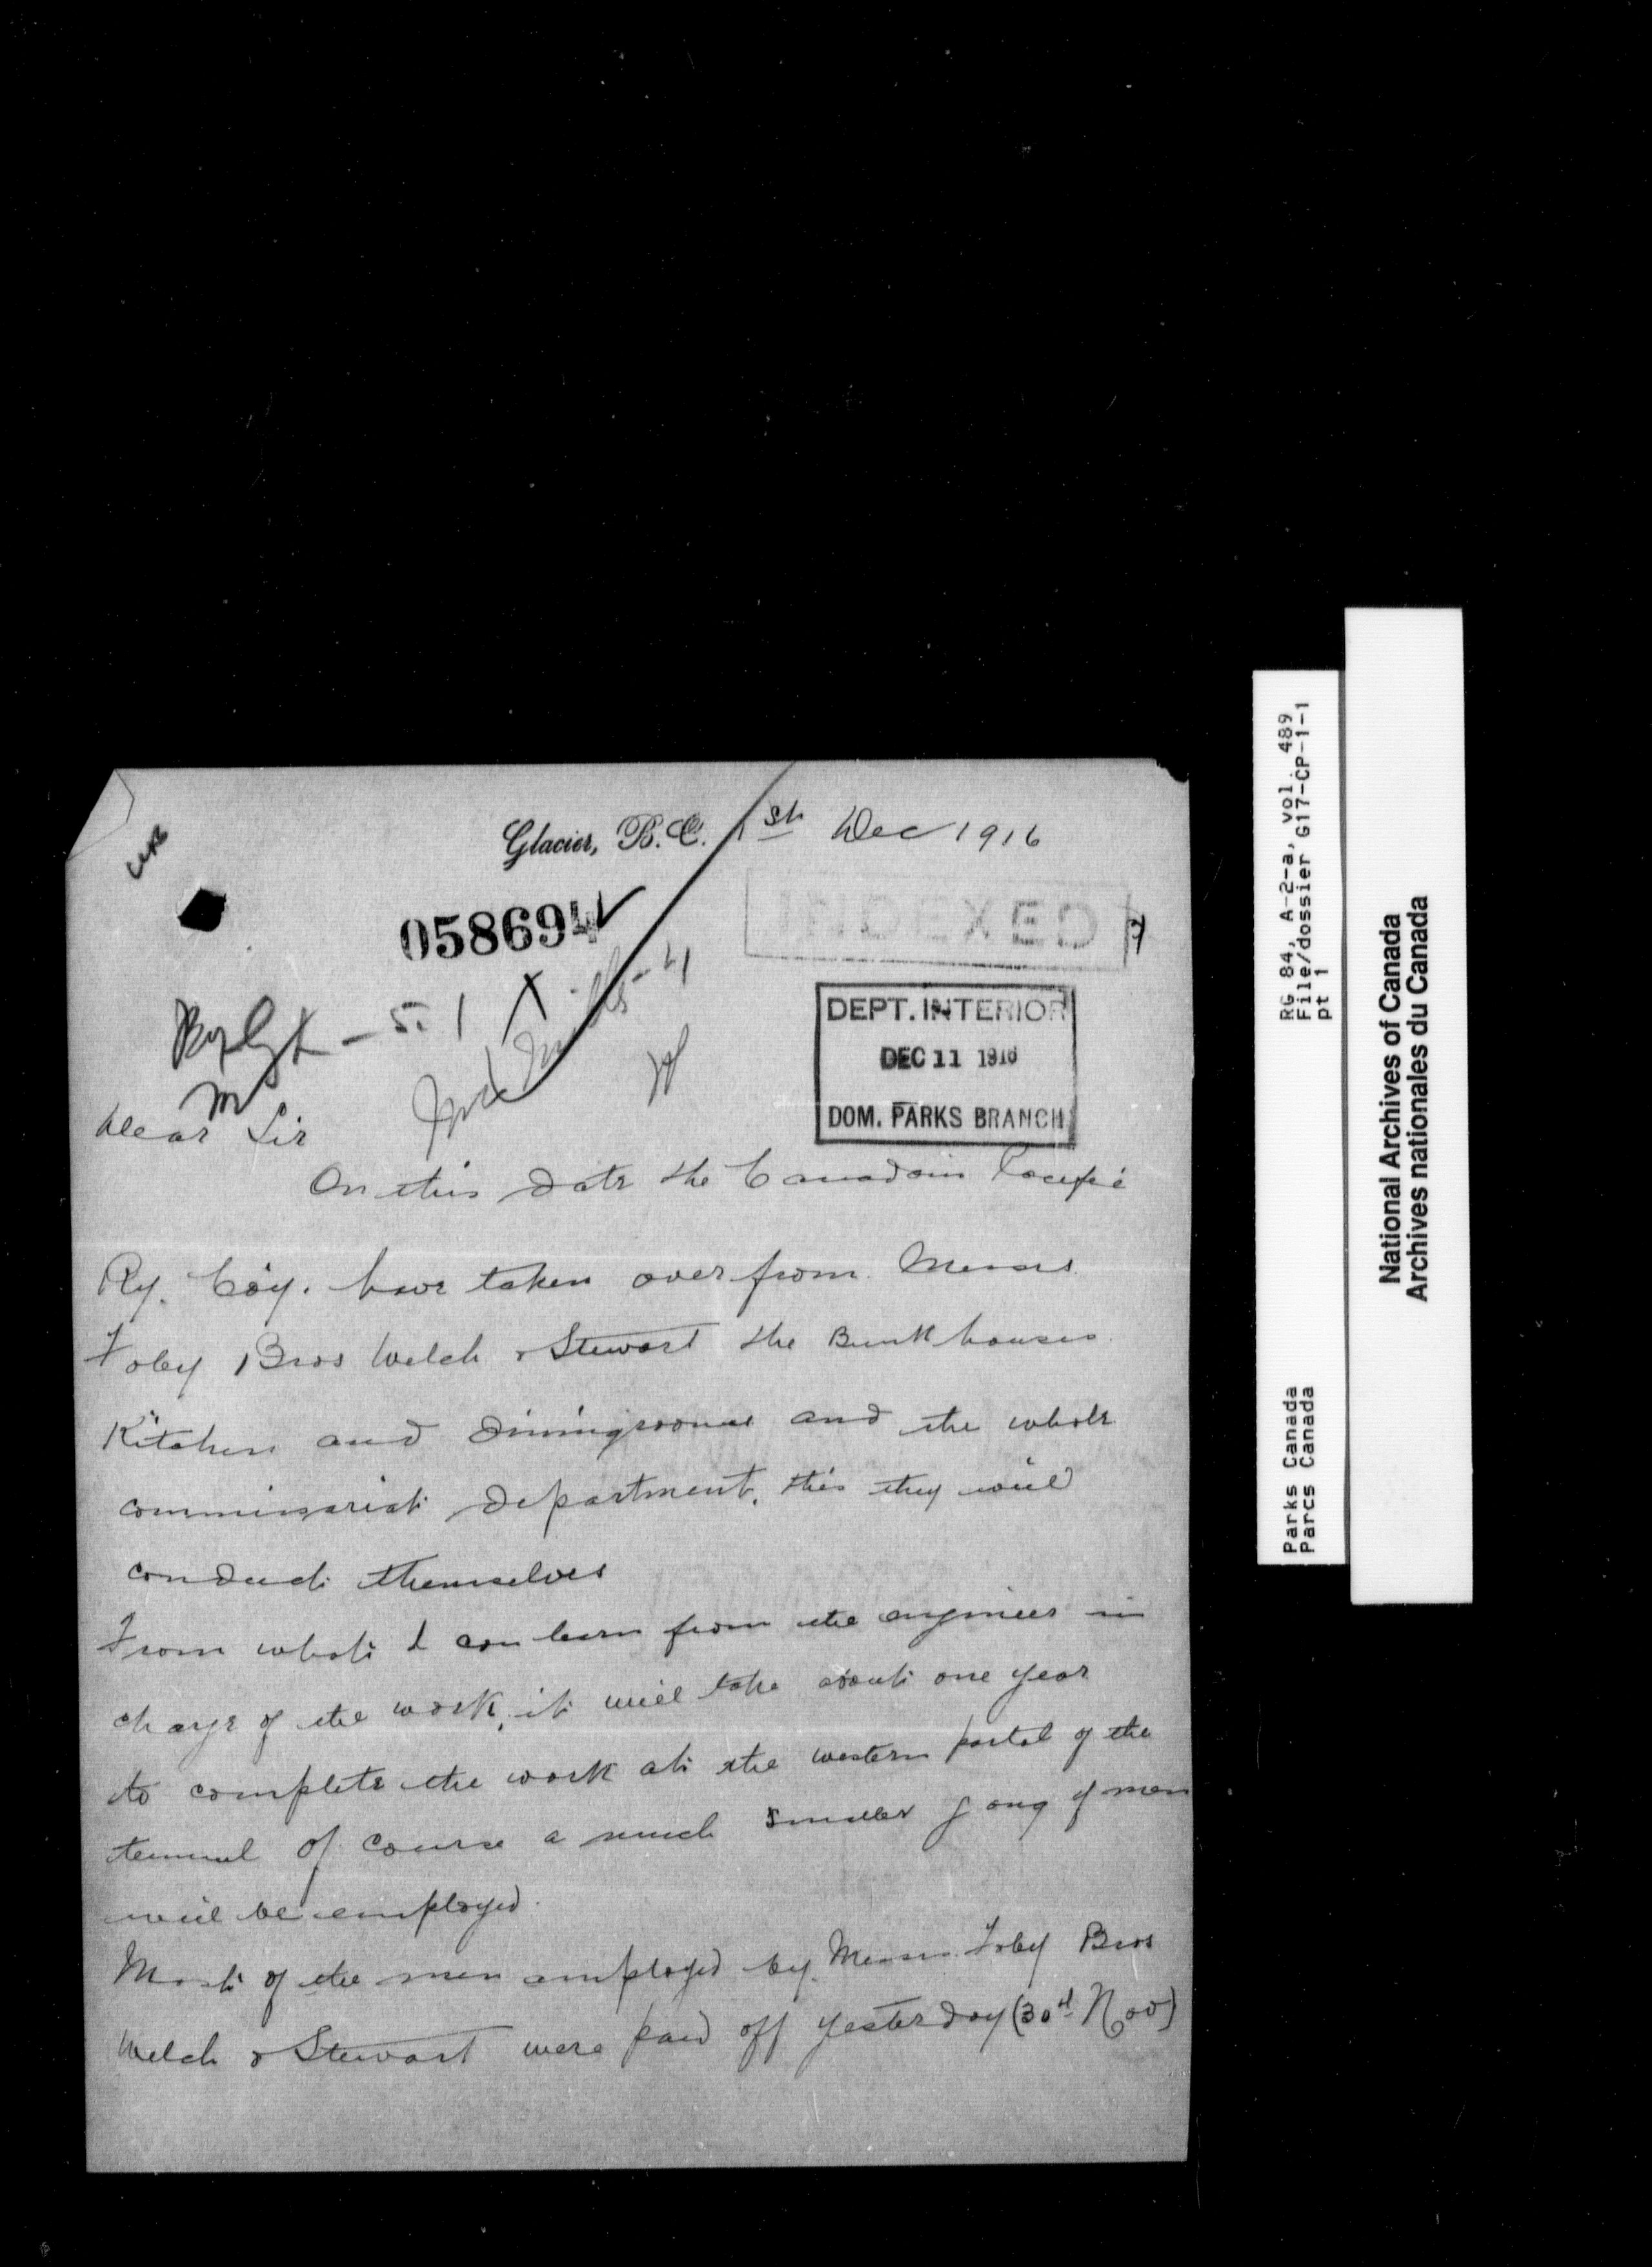 Glacier, B.C. 1st Dec 1916
058694
INDEXED
- 5.1 X
DEPT. INTERIOR
DEC 11 1916
DOM. PARKS BRANCH
Dear Sir
On this date the Canadain Pacific
Ry. Coy. have taken over from Messrs
Foley Bros Welch & Stewart the Bunkhouses
Kitchen and diningrooms and the whole
commissariat department, this they will
conduct themselves
From what I can learn from the engineer in
charge of the work, it will take about one year
to complete the work at the western portal of the
tunnel of course a much smaller gang of men
will be employed.
Most of the men employed by Messrs. Foley Bros
Welch & Stewart were paid off yesterday (30th Nov)
RG 84, A-2-a, vol. 489
File/dossier G17-CP-1-1
pt 1
Parks Canada
Parcs Canada
National Archives of Canada
Archives nationales du Canada